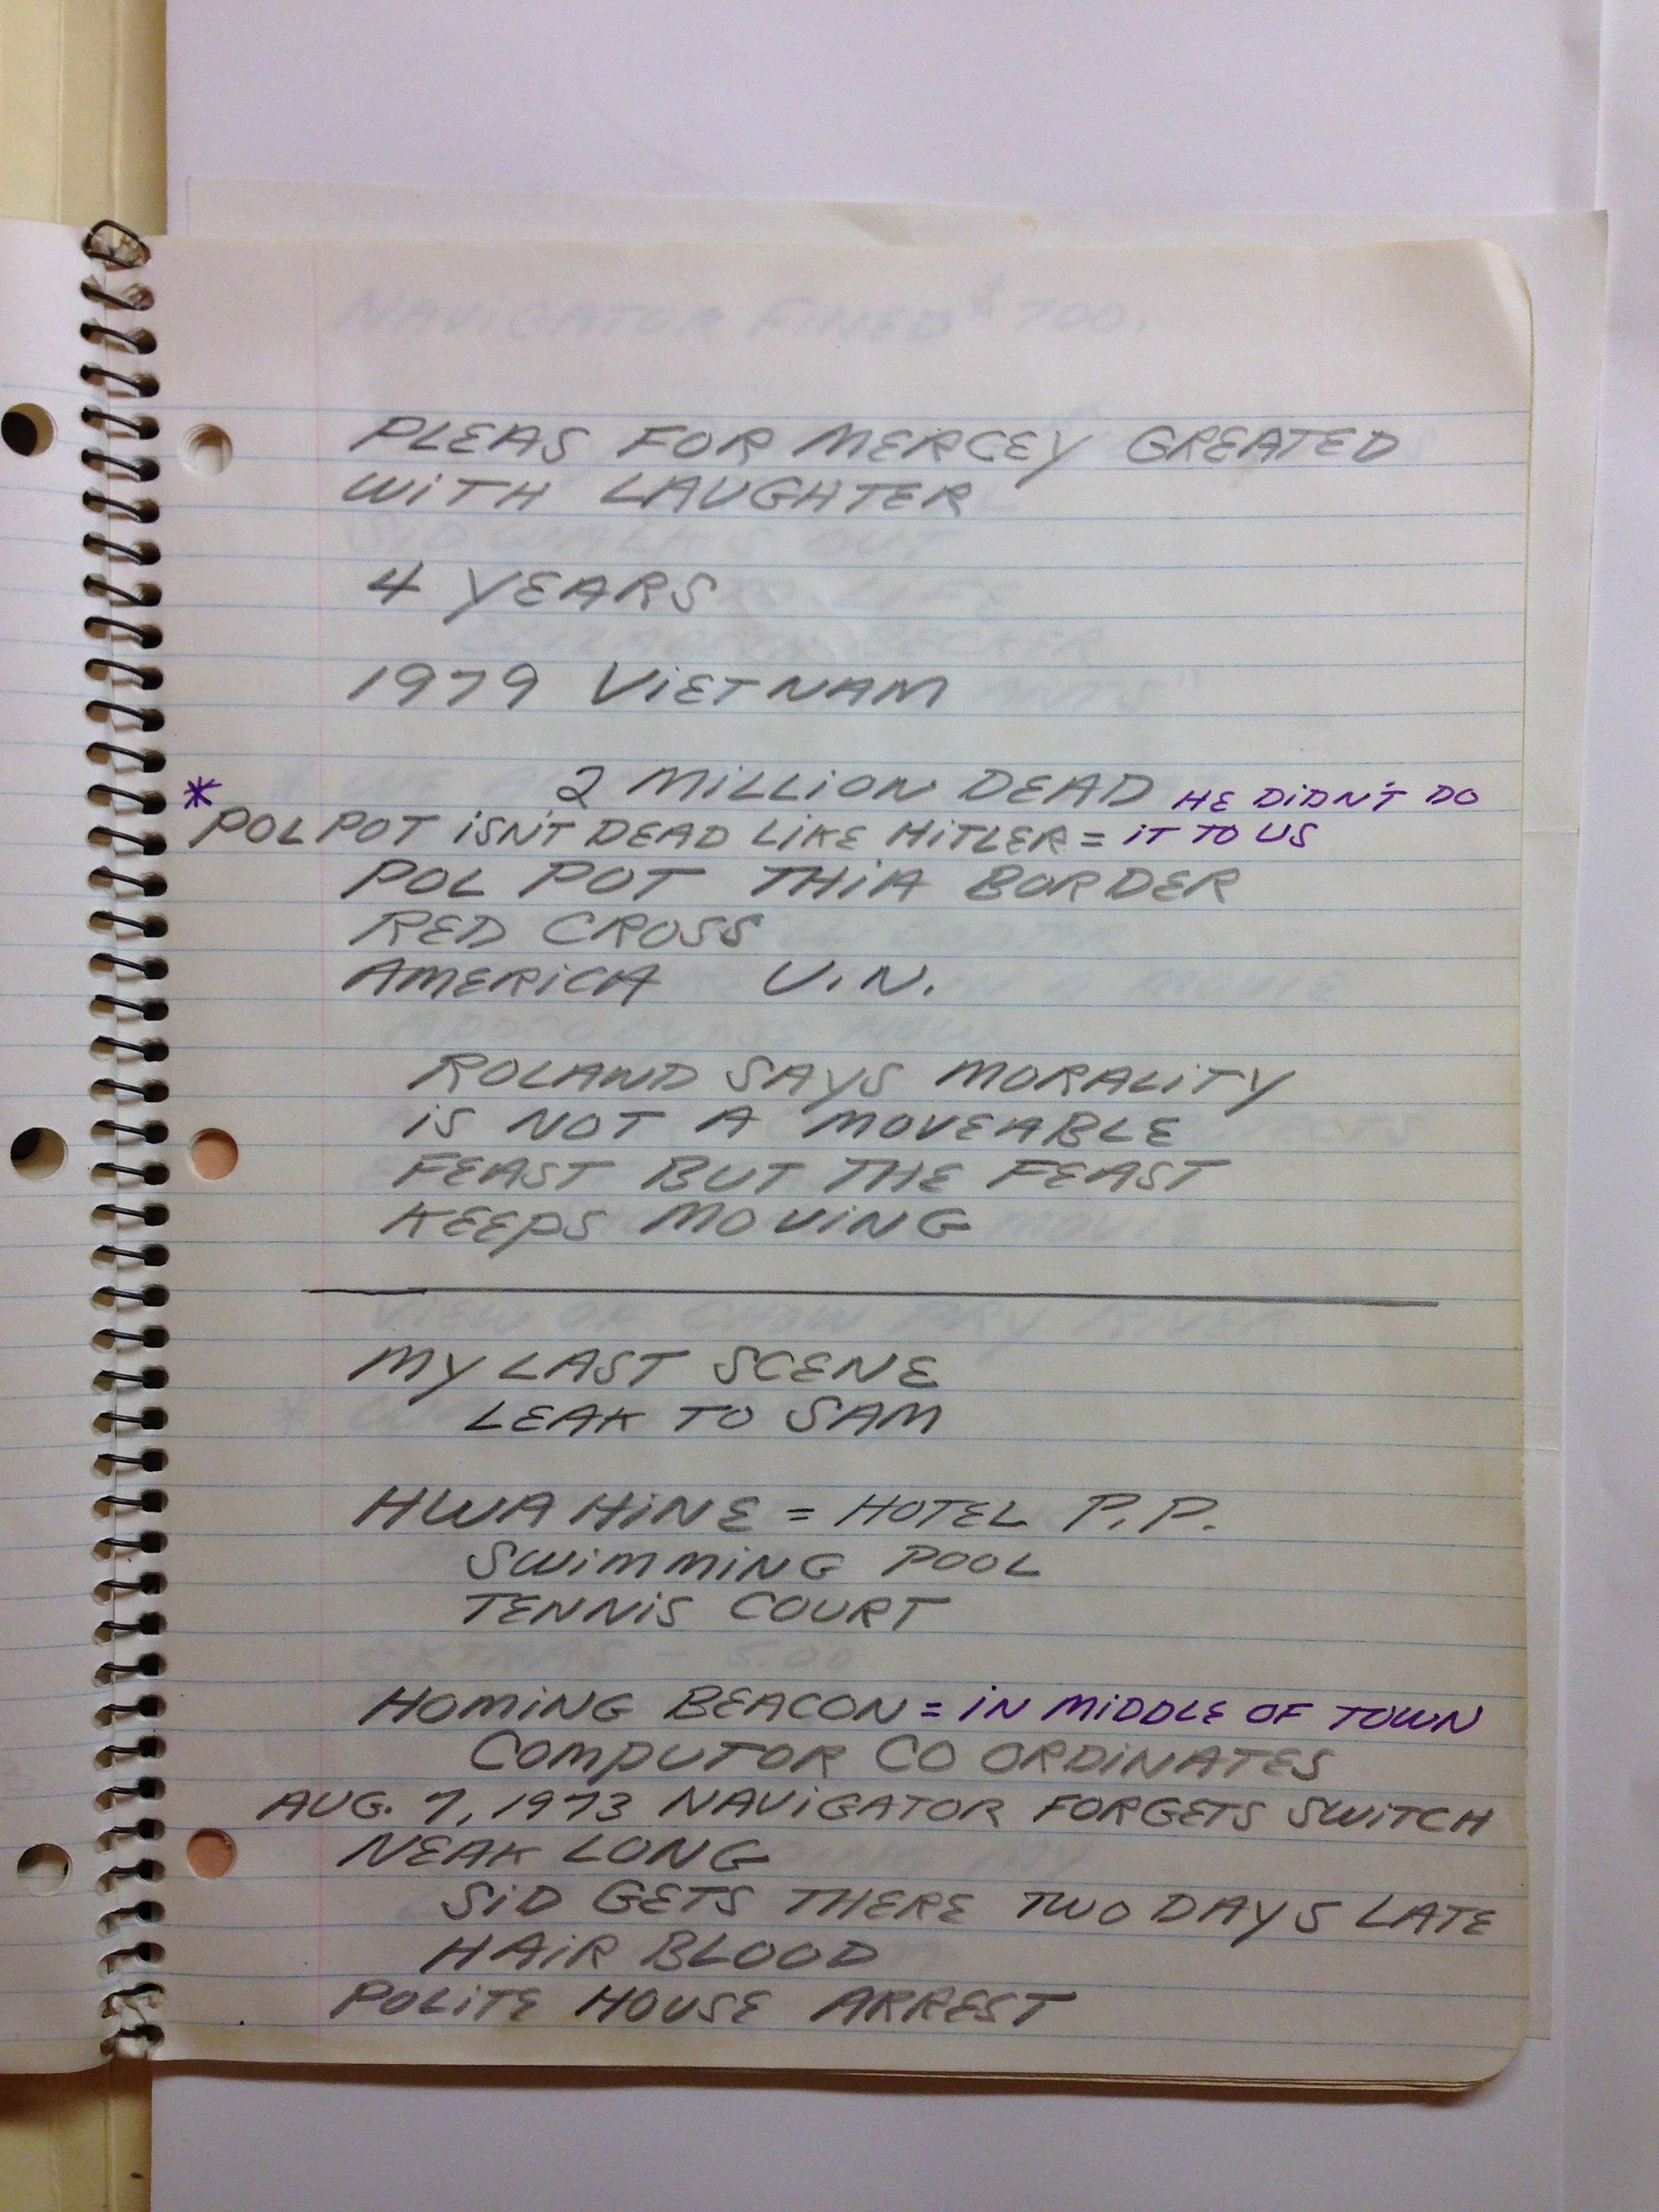 NAVIGATOR FINED $700.
PLEAS FOR MERCEY GREATED
WITH LAUGHTER
SID WALKS OUT
4 YEARS
1979 VIETNAM
2 MILLION DEAD HE DIDN'T DO
* POL POT ISN'T DEAD LIKE HITLER = IT TO US
POL POT THIA BORDER
RED CROSS
AMERICA U.N.
ROLAND SAYS MORALITY
IS NOT A MOVEABLE
FEAST BUT THE FEAST
KEEPS MOVING
VIEW OF CHOW PRY RIVER
MY LAST SCENE
LEAK TO SAM
HWA HINE = HOTEL P.P.
SWIMMING POOL
TENNIS COURT
EXTRAS - 5.00
HOMING BEACON = IN MIDDLE OF TOWN
COMPUTOR CO ORDINATES
AUG. 7, 1973 NAVIGATOR FORGETS SWITCH
NEAK LONG
SID GETS THERE TWO DAYS LATE
HAIR BLOOD
POLITE HOUSE ARREST